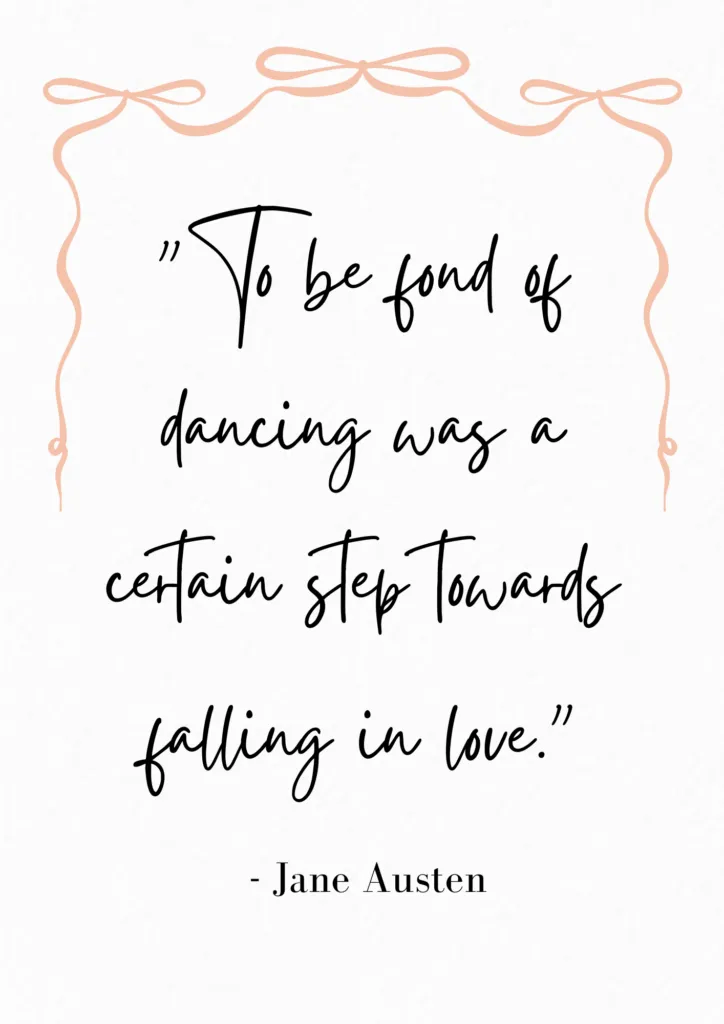 "To be fond of
dancing was a
certain step towards
falling in love."
- Jane Austen